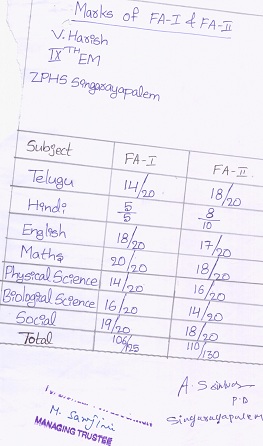 Marks of FA-I & FA-II
V. Harish
IX TH EM
ZPHS Singarayapalem
Subject FA-I FA-II
Telugu 14/20 18/20
Hindi 5/5 8/10
English 18/20 17/20
Maths 20/20 18/20
Physical Science 14/20 16/20
Biological Science 16/20 14/20
Social 19/20 18/20
Total 106/125 110/130
P.D
Singarayapalem
MANAGING TRUSTEE